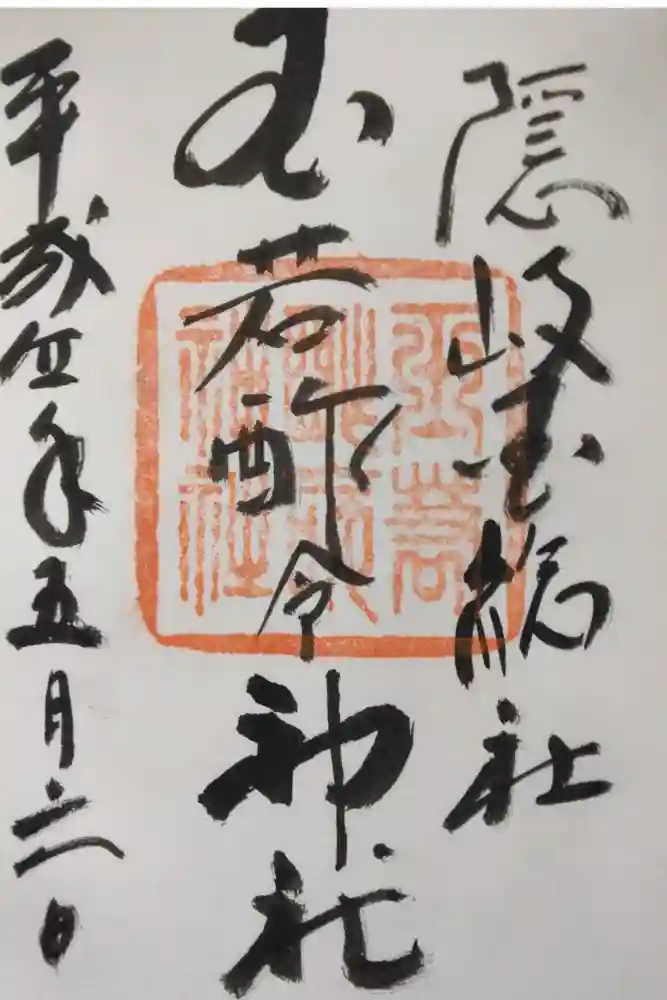 隠岐国総社
玉若酢命神社
平成年五月六日
玉若
酢命
神社